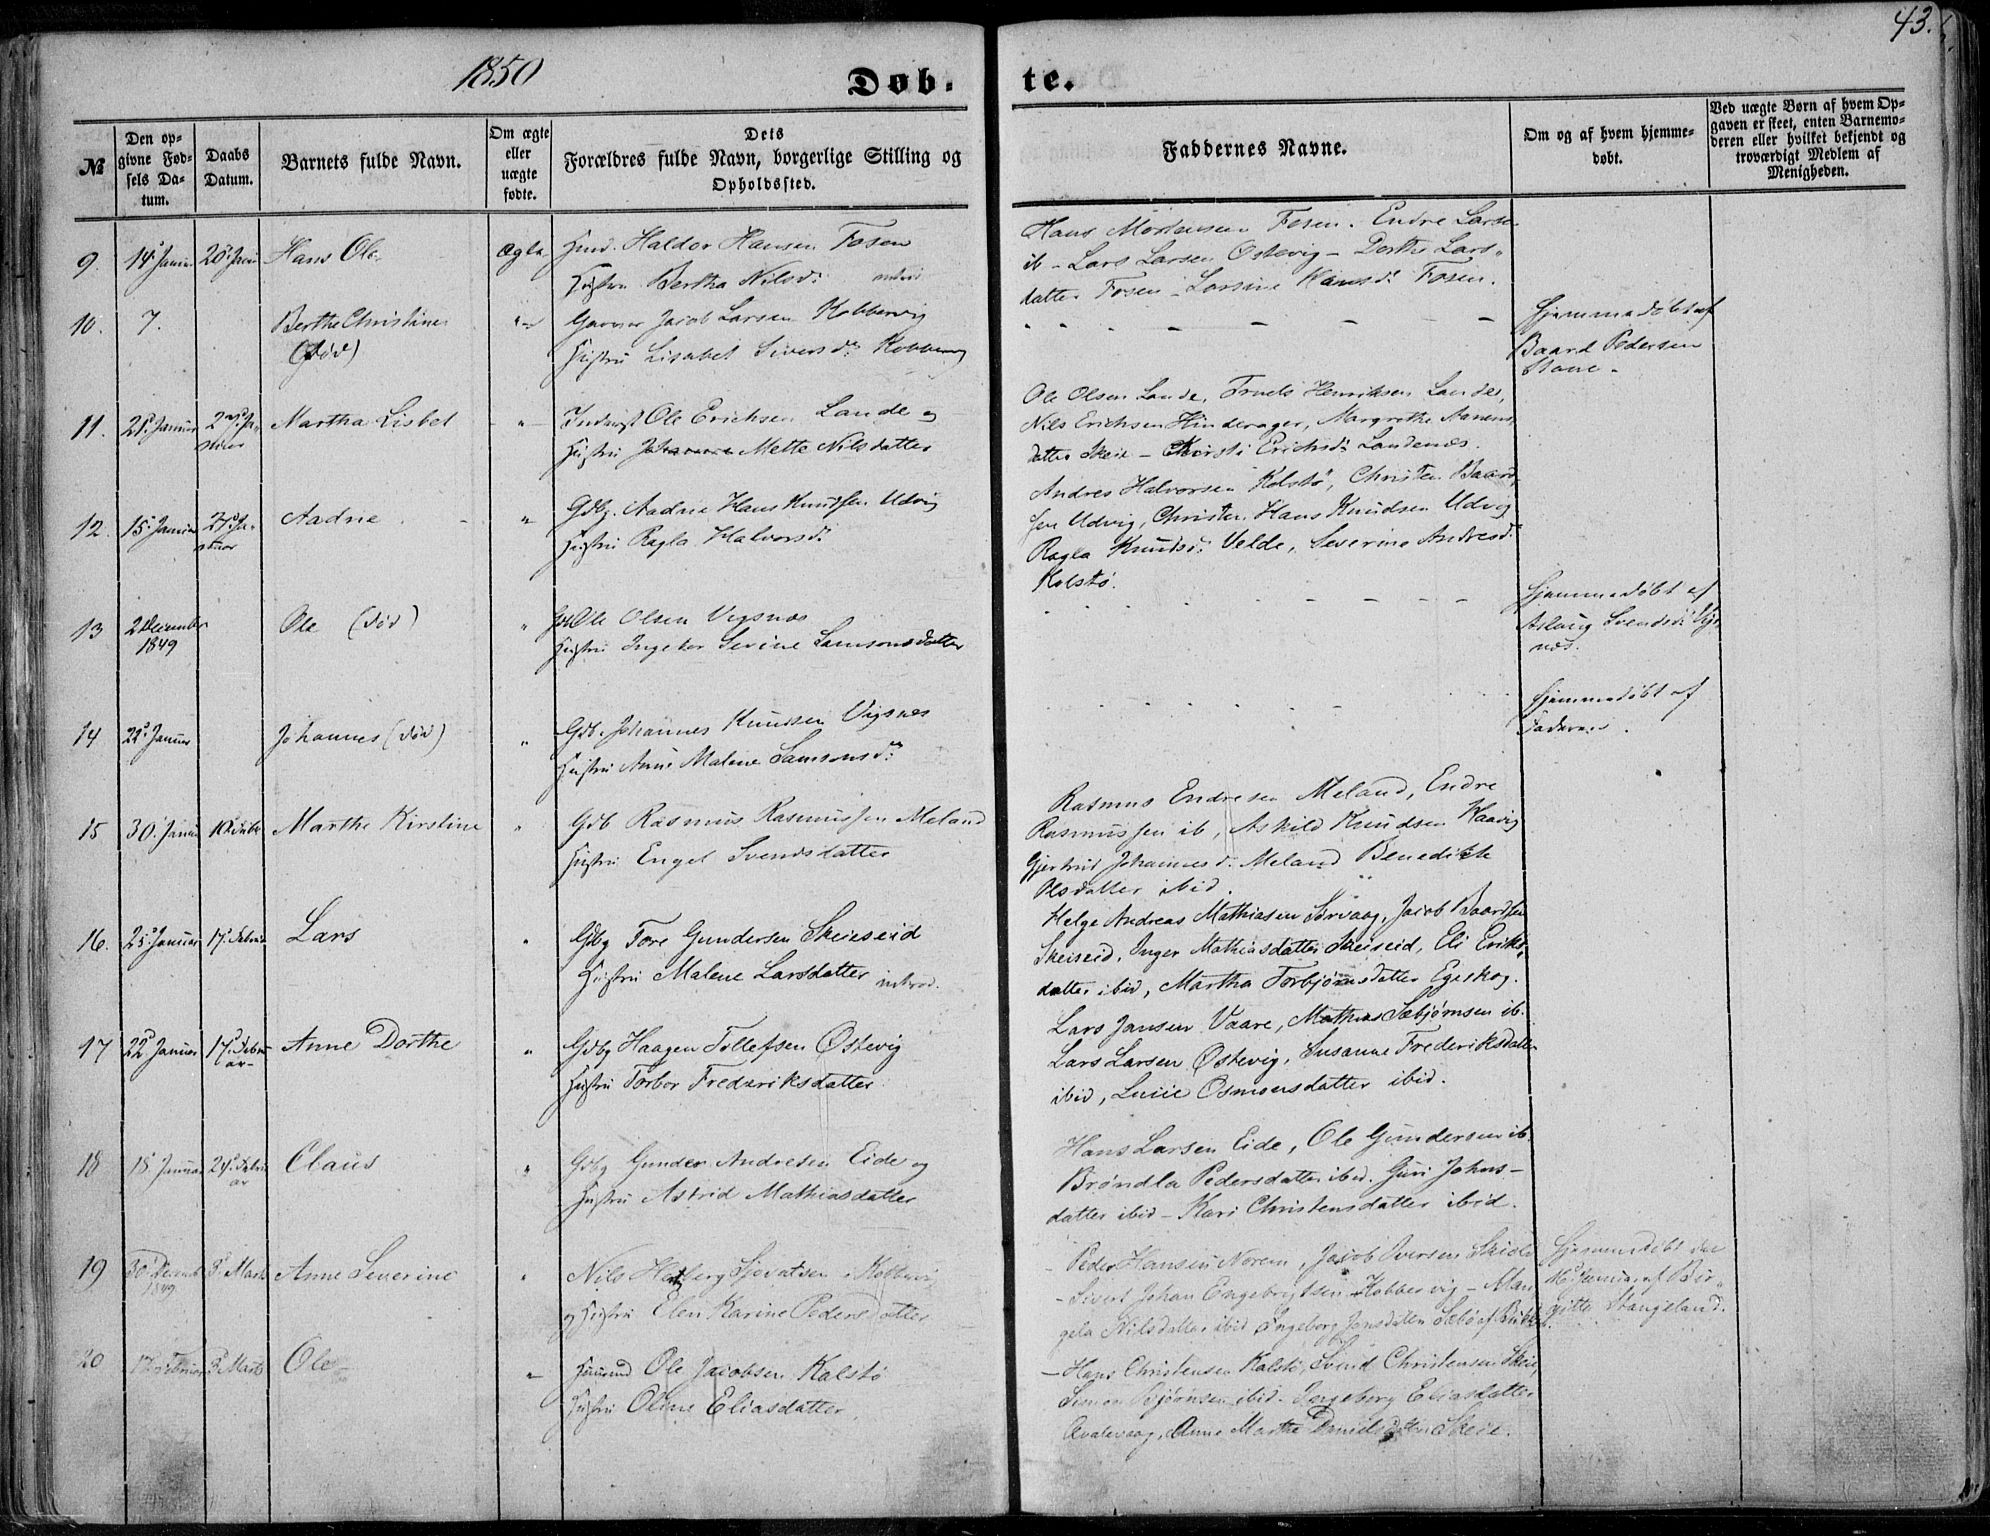 43.
1850
Døb- te.
№
Den opgivne Fødsels Datum.
Daabs Datum.
Barnets fulde Navn.
Om ægte eller uægte fødte.
Dets Forældres fulde Navn, borgerlige Stilling og Opholdssted.
Faddernes Navne.
Om og af hvem hjemmedøbt.
Ved uægte Børn af hvem Opgaven er skeet, enten Barnemoderen eller hvilket bekjendt og troværdigt Medlem af Menigheden.
9. 14 Januar 20 Januar Hans Ole Ægte Huusm. Haldor Hansen Fosen
Hustru Bertha Nilsd.
Hans Mortensen Fosen. Endre Larsen
ib - Lars Larsen Østevig - Dorthe Lars-
datter Fosen - Larsine Hansd. Fosen.
10. 7. Berthe Christine
(død)
Gaarm. Jacob Larsen Kobbervig
Hustru Lisabet Siversd. Kobbervig
Hjemmedøbt af
Baard Pedersen
Stave.
11. 21 Januar 27 Januar Martha Lisbet
Inderst Ole Erichsen Lande og
Hustru Johanne Mette Nilsdatter
Ole Olsen Lande, Truels Henriksen Lande,
Nils Erichsen Hinderager, Margrethe Aanens
datter Skeie - Kirsti Erichsd. Landenæs.
12. 15 Januar 27 Januar Aadne
Gdbg. Aadne Hans Knudsen Udvig
Hustru Ragla Halvorsd.
Andres Halvorsen Kolstø, Christen Baard
sen Udvig, Christen Hans Knudsen Udvig
Ragla Knudsd. Velde, Severine Andresd.
Kolstø.
13 2 December
1849
Ole (død)
Gdb Ole Olsen Vigsnæs
Hustru Ingebor Sevine Samsonsdatter
Hjemmedøbt af
Aslaug Svendsd. Vigs
næs.
14 22 Januar Johannes (død)
Gdb. Johannes Knudsen Vigsnes
Hustru Anne Malene Samsonsd.
Hjemmedøbt af
Faderen.
15 30 Januar 10 Febr Marthe Kirstine
Gdb Rasmus Rasmussen Meland
Hustru Engel Svendsdatter
Rasmus Endresen Meland, Endre
Rasmussen ib, Askild Knudsen Haavig
Gjertrud Johannesd. Meland Benedikte
Olsdatter ibid.
16. 25 Januar 17 Februar Lars
Gdbg Tore Gundersen Skeiseid
Hustru Malene Larsdatter introd.
Helge Andreas Mathiasen Sørvaag, Jacob Baardsen
Skeiseid, Inger Mathiasdatter Skeiseid, Eli Eriks-
datter ibid, Martha Torbjørnsdatter Egeskog.
17 22 Januar 17 Febru
ar
Anne Dorthe
Gdbg Haagen Tollefsen Østevig
Hustru Torbor Frederiksdatter
Lars Jansen Vaare, Mathias Sæbjørnsen ib.
Lars Larsen Østevig, Susanne Frederiksdatter
ibid, Lucie Osmonsdatter ibid.
18 18 Januar 24 Febru
ar
Claus
Gdbg Gunder Andresen Eide og
Hustru Astrid Mathiasdatter
Hans Larsen Eide, Ole Gundersen ib.
Brøndla Pedersdatter ibid. Guri Johns-
datter ibid - Kari Christensdatter ibid.
19 30 Decemb
1849
3 Marts Anne Severine
Nils Hatberg Sjovatsen Kobbervig
og Hustru Elen Karine Pedersdatter
Peder Hansen Norem, Jacob Iversen Skeide
- Sivert Johan Engebrigtsen Kobbervig - Man
gela Nilsdatter ibid Ingeborg Jonsdatter Sæbø af Bukken.
Hjemmedøbt den
af Bir-
gitte Stangeland.
20 17 Februar 3 Marts Ole
Huusmd Ole Jacobsen Kalstø
Hustru Oline Eliasdatter
- Hans Christensen Kalstø, Svend Christensen Skeie,
Simon Bjørnsen ibid. Ingeborg Eliasdatter
Qvalevaag, Anne Marthe Danielsdatter Skeie.